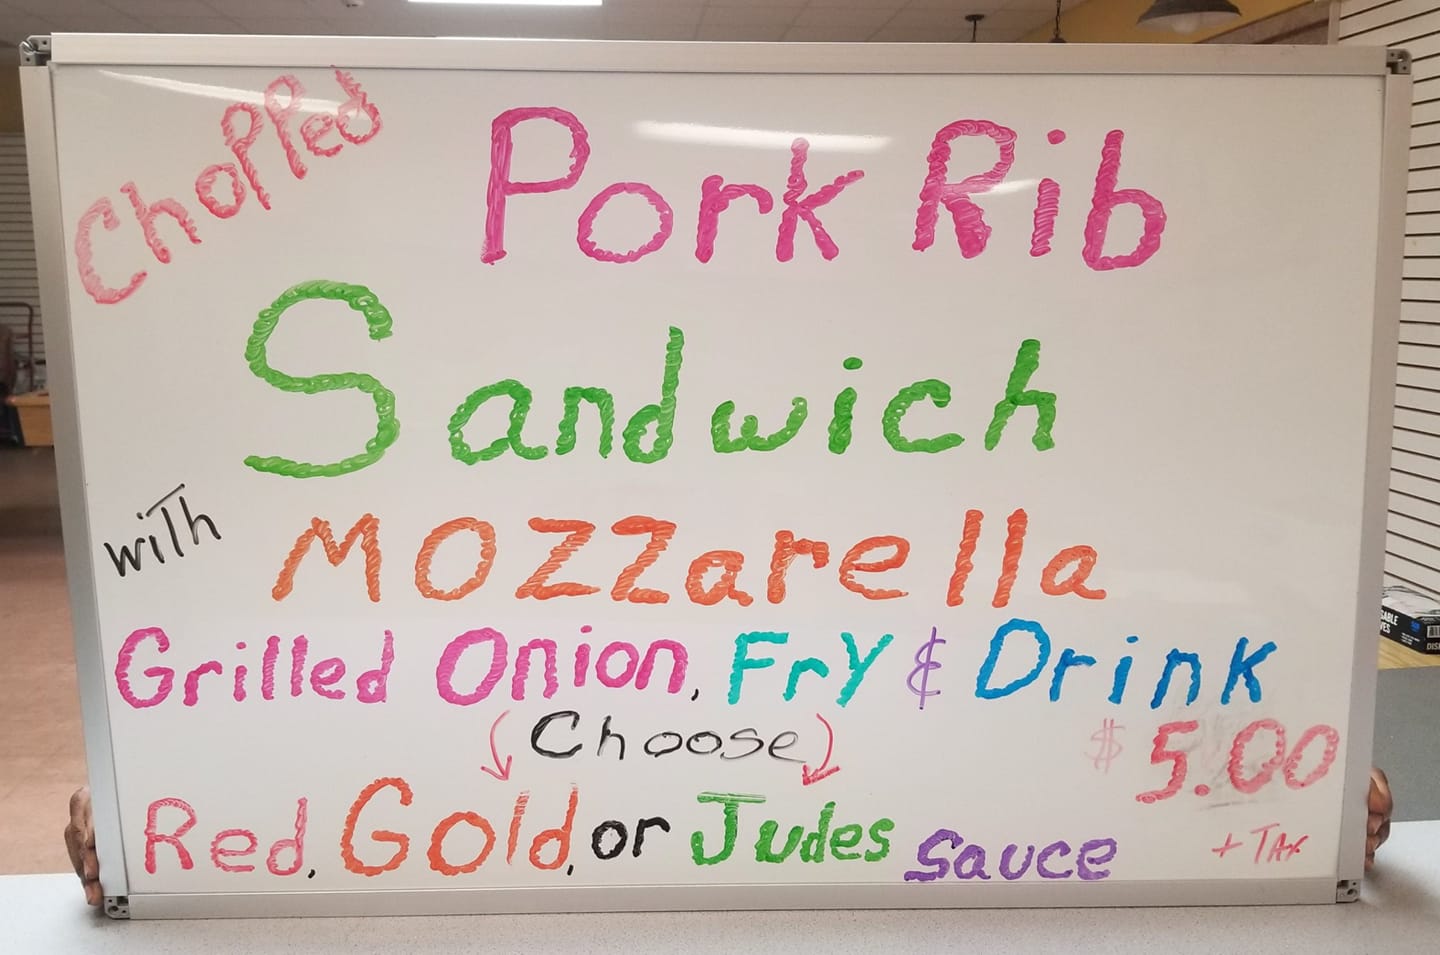 Chopped
Pork Rib
Sandwich
with
Mozzarella
Grilled Onion, Fry & Drink
(Choose)
$5.00
Red, Gold, or Judes Sauce
+ Tax